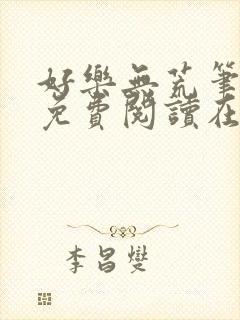 好樂無荒筆
免費閱讀在
李昌燮